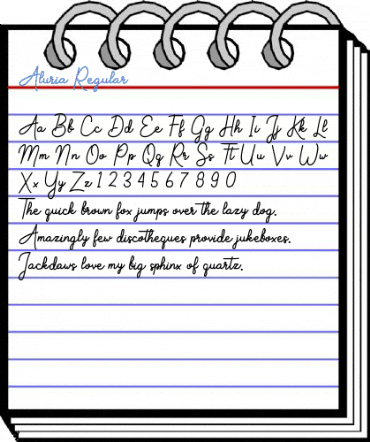 Aluria Regular
Aa Bb Cc Dd Ee Ff Gg Hh Ii Jj Kk Ll
Mm Nn Oo Pp Qq Rr Ss Tt Uu Vv Ww
Xx Yy Zz 1 2 3 4 5 6 7 8 9 0
The quick brown fox jumps over the lazy dog.
Amazingly few discotheques provide jukeboxes.
Jackdaws love my big sphinx of quartz.